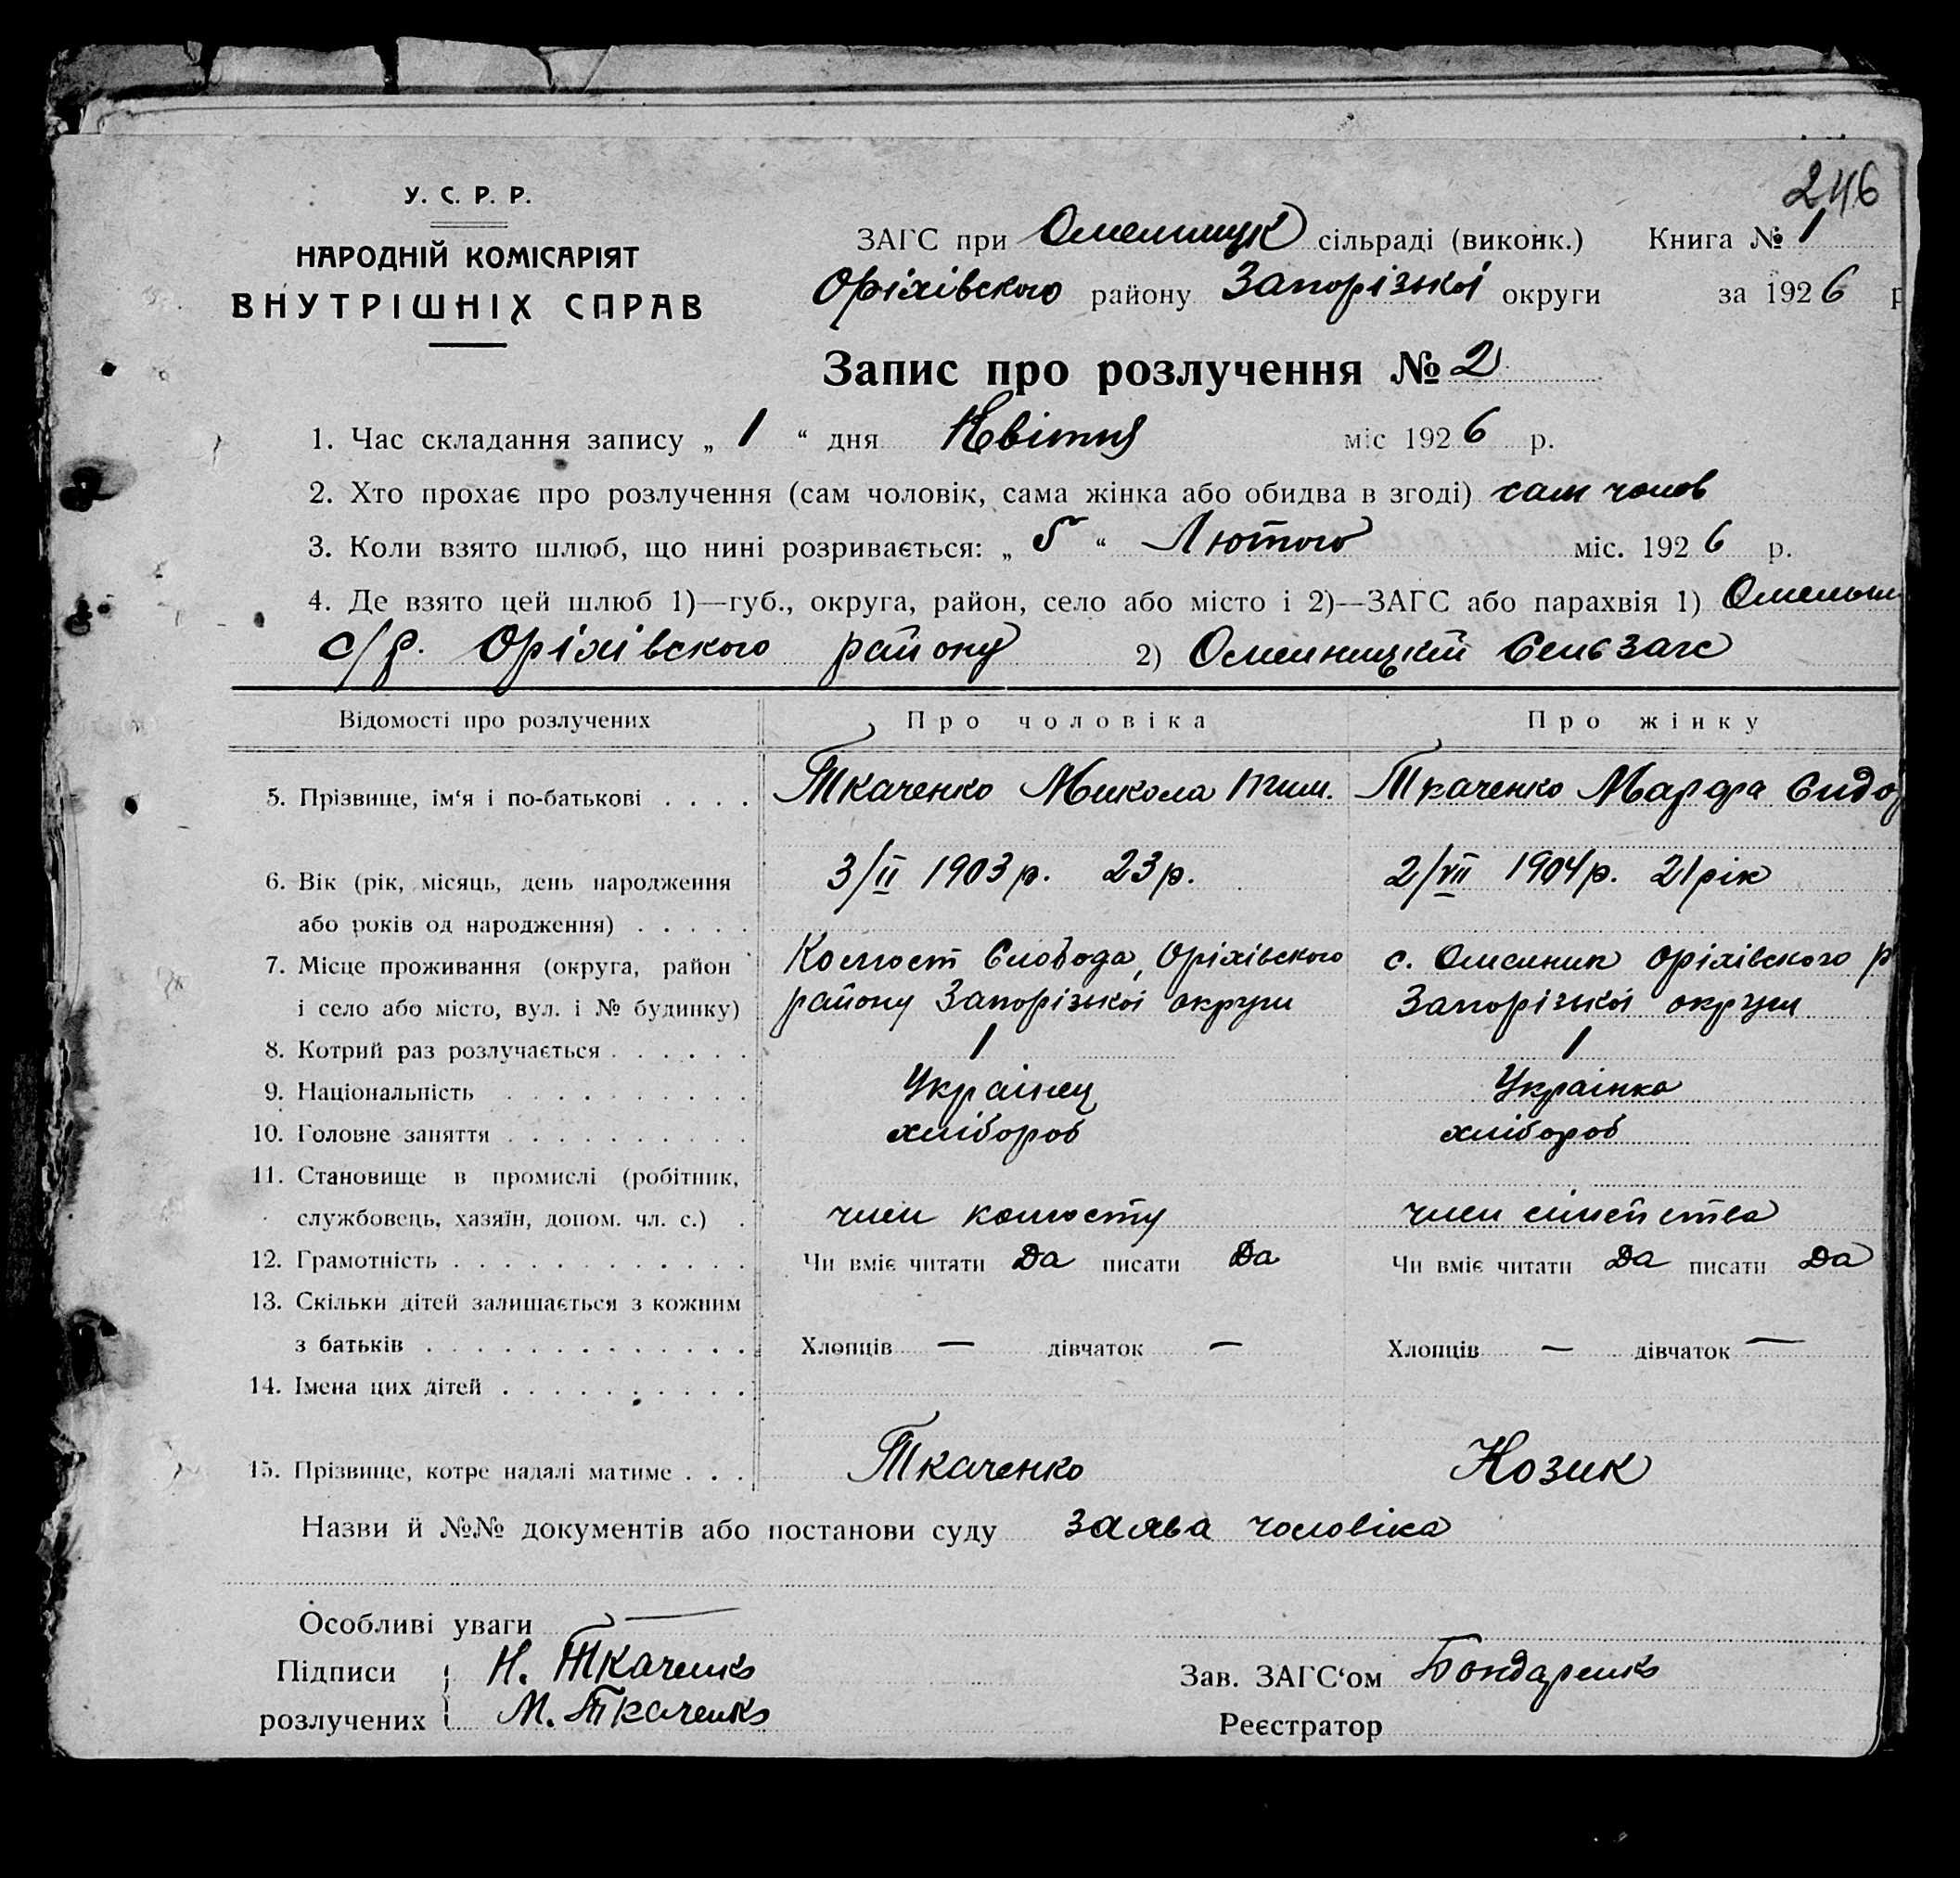 246
У. С. Р. Р.
НАРОДНІЙ КОМІСАРІЯТ
ВНУТРІШНІХ СПРАВ
ЗАГС при Омельницьк сільраді (виконк.) Книга № 1
Оріхівского району Запорізькоі округи за 1926 р
Запис про розлучення № 2
1. Час складання запису „ 1 “ дня Квітня міс 1926 р.
2. Хто прохає про розлучення (сам чоловік, сама жінка або обидва в згоді) сам чолов
3. Коли взято шлюб, що нині розривається: „ 5 “ Лютого міс. 1926 р.
4. Де взято цей шлюб 1)—губ., округа, район, село або місто і 2)—ЗАГС або парахвія 1) Омельн
с/р. Оріхівского району 2) Омелницкій Сельзагс
Відомості про розлучених Про чоловіка Про жінку
5. Прізвище, ім‘я і по-батькові . . . . Ткаченко Микола Ткаченко Марфа Сидор
6. Вік (рік, місяць, день народження 3/II 1903 р. 23 р. 2/VII 1904 р. 21 рік
або років од народження) . . . . .
7. Місце проживання (округа, район Колгост Слобода, Оріхівского с. Омелник Оріхівского р
і село або місто, вул. і № будинку) району Запорізькоі округи Запорізькоі округи
8. Котрий раз розлучається . . . . . . 1 1
9. Національність . . . . . . . . . . Украінец Украінка
10. Головне заняття . . . . . . . . . . хлібороб хлібороб
11. Становище в промислі (робітник,
службовець, хазяїн, допом. чл. с.) . член колгосту член сімейства
12. Грамотність . . . . . . . . . . . . Чи вміє читати Да писати Да Чи вміє читати Да писати Да
13. Скільки дітей залишається з кожним
з батьків . . . . . . . . . . . . . Хлопців — дівчаток — Хлопців — дівчаток —
14. Імена цих дітей . . . . . . . . . .
15. Прізвище, котре надалі матиме . . . Ткаченко Козик
Назви й №№ документів або постанови суду заява чоловіка
Особливі уваги —
Підписи Н. Ткаченко Зав. ЗАГС‘ом Бондаренко
розлучених М. Ткаченко Реєстратор